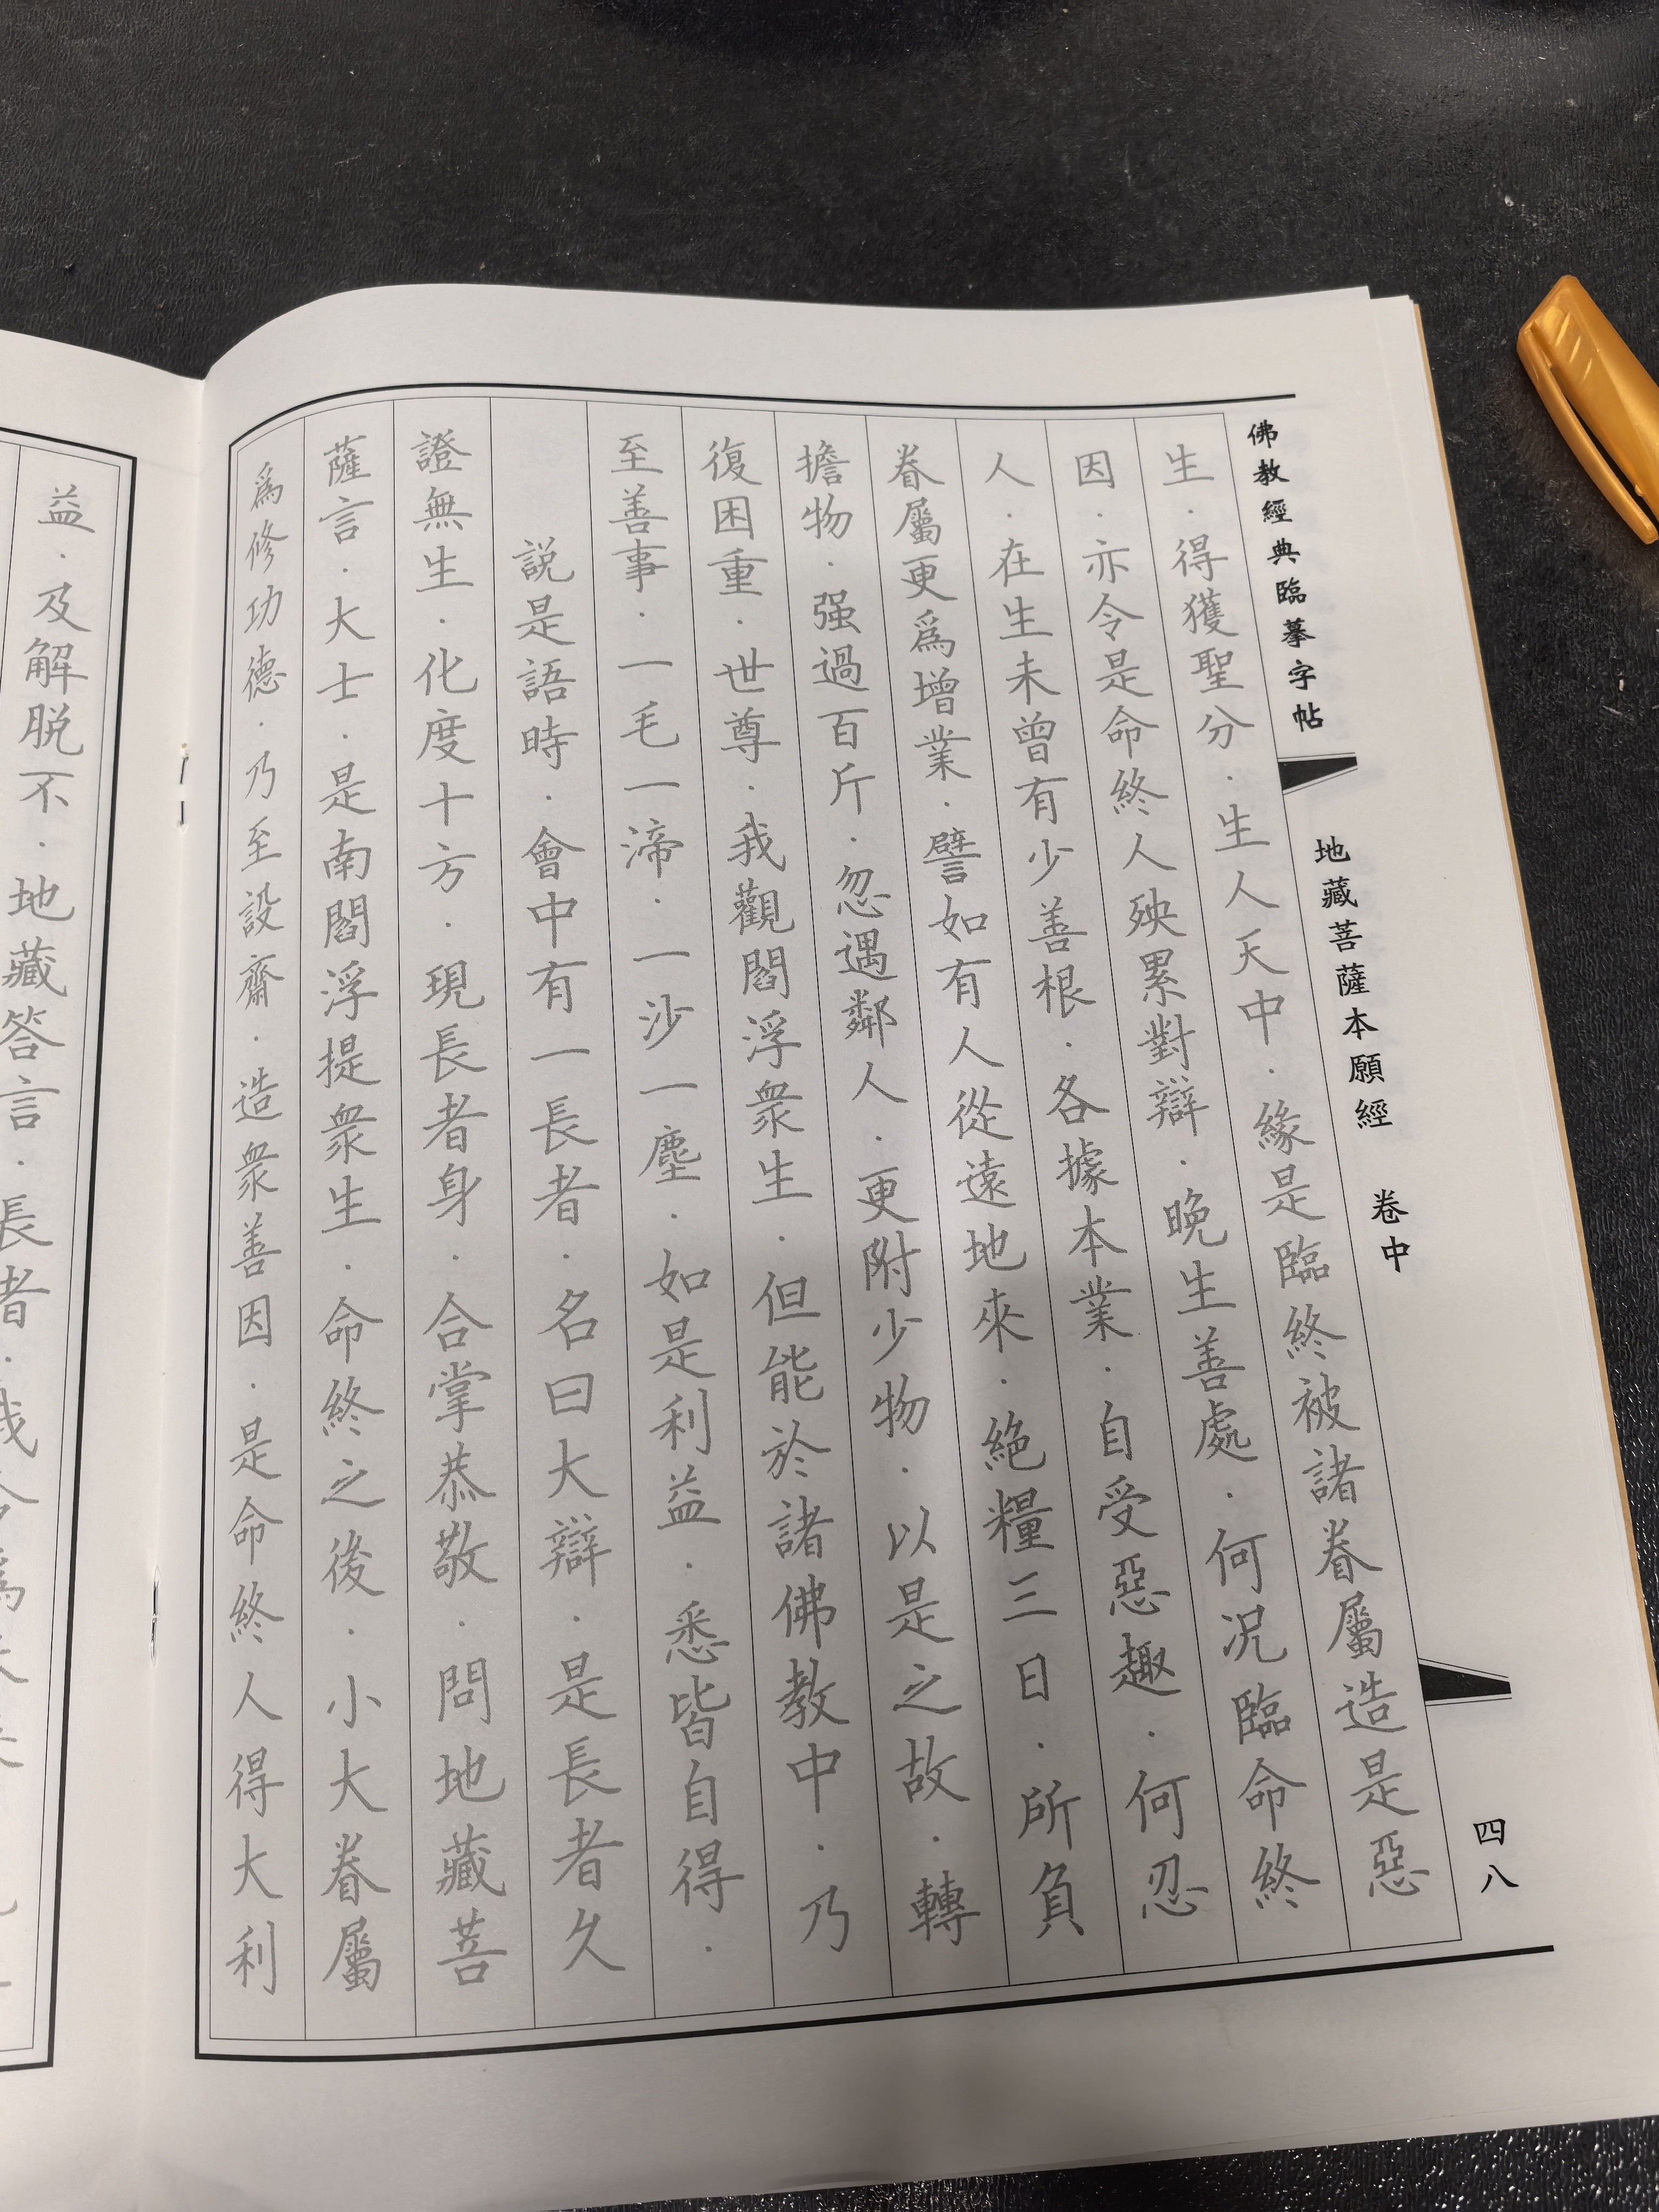 佛教經典臨摹字帖
地藏菩薩本願經 卷中
四八
生．得獲聖分．生人天中．緣是臨終被諸眷屬造是惡
因．亦令是命終人殃累對辯．晚生善處．何况臨命終
人．在生未曾有少善根．各據本業．自受惡趣．何忍
眷屬更爲增業．譬如有人從遠地來．絕糧三日．所負
擔物．强過百斤．忽遇鄰人．更附少物．以是之故．轉
復困重．世尊．我觀閻浮衆生．但能於諸佛教中．乃
至善事．一毛一渧．一沙一塵．如是利益．悉皆自得．
説是語時．會中有一長者．名曰大辯．是長者久
證無生．化度十方．現長者身．合掌恭敬．問地藏菩
薩言．大士．是南閻浮提衆生．命終之後．小大眷屬
爲修功德．乃至設齋．造衆善因．是命終人得大利
益．及解脱不．地藏答言．長者．我今爲